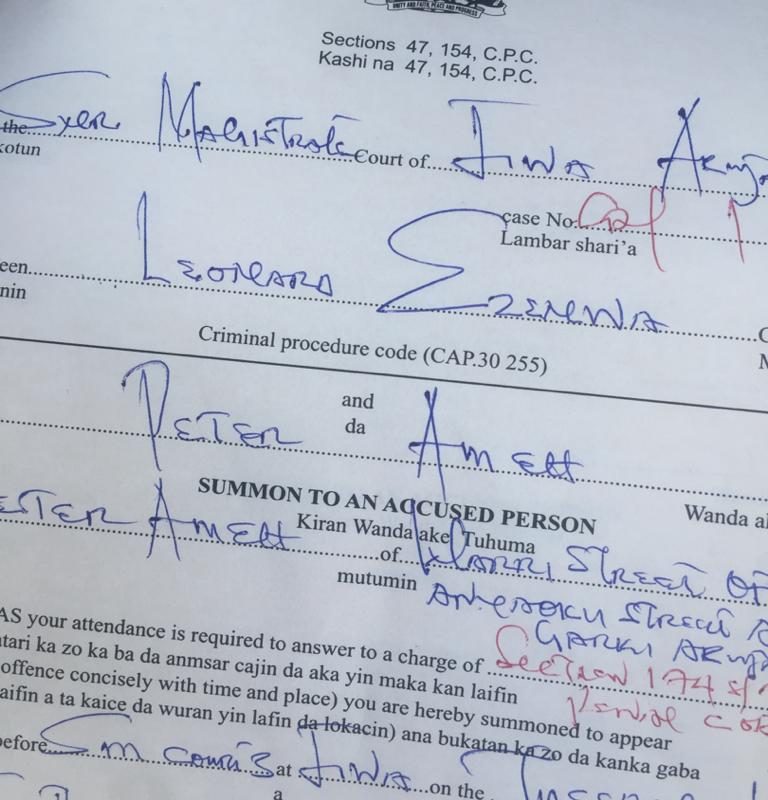 UNITY AND FAITH, PEACE AND PROGRESS
Sections 47, 154, C.P.C.
Kashi na 47, 154, C.P.C.
the Magistrate Court of JIWA
kotun
case No:
Lambar shari'a
een LEONARD EZENWA
nin
Criminal procedure code (CAP.30 255)
and
da
PETER AMEH
SUMMON TO AN ACCUSED PERSON
Wanda a
Kiran Wanda ake Tuhuma
ETER AMEH of STREET OF
mutumin STREET
GARKI
AS your attendance is required to answer to a charge of Section 174
tari ka zo ka ba da anmsar cajin da aka yin maka kan laifin Penal
offence concisely with time and place) you are hereby summoned to appear
aifin a ta kaice da wuran yin lafin da lokacin) ana bukatan ka zo da kanka gaba
before at JIWA on the
a